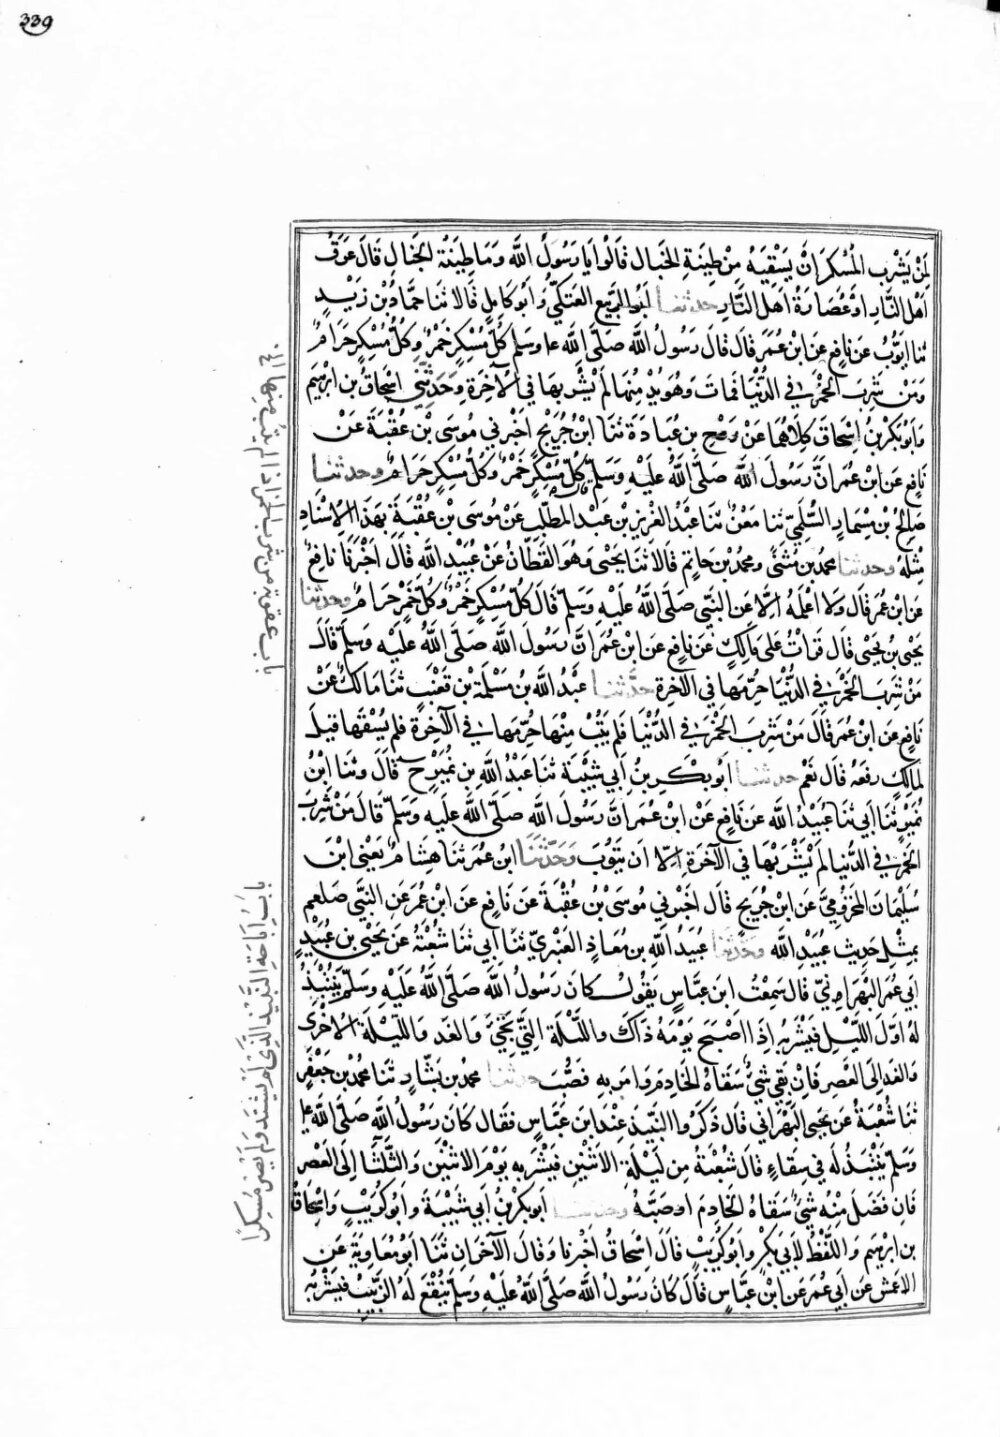 339
لِمَنْ يَشْرَبُ الْمُسْكِرَ اَنْ يَسْقِيَهُ مِنْ طِينَةِ الْخَبَالِ قَالُوا يَا رَسُولَ اللّٰهِ وَمَا طِينَةُ الْخَبَالِ قَالَ عَرَقُ
اَهْلِ النَّارِ اَوْ عُصَارَةُ اَهْلِ النَّارِ حدثنا اَبُو الرَّبِيعِ الْعَتَكِيُّ وَاَبُو كَامِلٍ قَالَا ثَنَا حَمَّادُ بْنُ زَيْدٍ
ثنا اَيُّوبُ عَنْ نَافِعٍ عَنِ ابْنِ عُمَرَ قَالَ قَالَ رَسُولُ اللّٰهِ صَلَّى اللّٰهُ علٖ وسَلم كُلُّ مُسْكِرٍ خَمْرٌ وَكُلُّ مُسْكِرٍ حَرَامٌ
وَمَنْ شَرِبَ الْخَمْرَ فِي الدُّنْيَا فَمَاتَ وَهُوَ يُدْمِنُهَا لَمْ يَشْرَبْهَا فِي الْآخِرَةِ وَحَدَّثَنِي اِسْحَاقُ بن ابْرٰهِيم
وَاَبُو بَكْرِ بْنُ اِسْحَاقَ كِلَاهُمَا عَنْ رَوْحِ بْنِ عُبَادَةَ ثَنَا ابْنُ جُرَيْجٍ اَخْبَرَنِي مُوسَى بْنُ عُقْبَةَ عَنْ
نَافِعٍ عَنِ ابْنِ عُمَرَ اَنَّ رَسُولَ اللّٰهِ صَلَّى اللّٰهُ عَلَيْهِ وَسَلَّمَ كُلُّ مُسْكِرٍ خَمْرٌ وَكُلُّ مُسْكِرٍ حَرَامٌ وحدثنا
صَالِحُ بْنُ مِسْمَارٍ السُّلَمِيُّ ثنا مَعْنٌ ثَنَا عَبْدُ الْعَزِيزِ بْنُ عَبْدِ الْمُطَّلِبِ عَنْ مُوسَى بْنِ عُقْبَةَ بِهَذَا الْاِسْنَادِ
مِثْلَهُ وحدثنا محمد بن مُثَنًّى ومحمد بن حَاتِمٍ قَالَا ثَنَا يَحْيَى وَهُوَ الْقَطَّانُ عَنْ عُبَيْدِ اللّٰهِ قَالَ اَخْبَرَنَا نَافِعٌ
عَنِ ابْنِ عُمَرَ قَالَ وَلَا اَعْلَمُهُ اِلَّا عَنِ النَّبِيِّ صَلَّى اللّٰهُ عَلَيْهِ وَسَلَّمَ قَالَ كُلُّ مُسْكِرٍ خَمْرٌ وَكُلُّ خَمْرٍ حَرَامٌ وحدثنا
يَحْيَى بن يَحْيَى قَالَ قَرَاْتُ عَلَى مَالِكٍ عَنْ نَافِعٍ عَنِ ابْنِ عُمَرَ اَنَّ رَسُولَ اللّٰهِ صَلَّى اللّٰهُ عَلَيْهِ وَسَلَّمَ قَالَ
مَنْ شَرِبَ الْخَمْرَ فِي الدُّنْيَا حُرِمَهَا فِي الْآخِرَةِ حدثنا عَبْدُ اللّٰهِ بن مَسْلَمَةَ بْنِ قَعْنَبٍ ثَنَا مَالِكٌ عَنْ
نَافِعٍ عَنِ ابْنِ عُمَرَ قَالَ مَنْ شَرِبَ الْخَمْرَ فِي الدُّنْيَا فَلَمْ يَتُبْ مِنْهَا حُرِمَهَا فِي الْآخِرَةِ فلم يُسْقَهَا قِيلَ
لِمَالِكٍ رَفَعَهُ قَالَ نَعَمْ حدثنا اَبُو بَكْرِ بنُ اَبِي شَيْبَةَ ثَنَا عَبْدُ اللّٰهِ بن نُمَيْرٍ ح قَالَ وَثَنَا ابْنُ
نُمَيْرٍ ثَنَا اَبِي ثَنَا عُبَيْدُ اللّٰهِ عَنْ نَافِعٍ عَنْ ابْنِ عُمَرَ اَنَّ رَسُولَ اللّٰهِ صَلَّى اللّٰهُ عَلَيهِ وَسَلَّمَ قَالَ مَنْ شَرِبَ
الْخَمْرَ فِي الدُّنيَا لَمْ يَشْرَبْهَا فِي الْآخِرَةِ اِلَّا اَنْ يَتُوبَ وَحَدَّثَنَا ابْنُ عُمَرَ ثَنَا هِشَامٌ يَعْنِي ابْنَ
سُلَيْمَانَ الْمَخْزُومِيَّ عَنِ ابْنِ جُرَيْجٍ قَالَ اَخْبَرَنِي مُوسَى بْنُ عُقْبَةَ عَنْ نَافِعٍ عَنِ ابْنِ عُمَرَ عَنِ النَّبِيِّ صلعم
بِمِثْلِ حَدِيثِ عُبَيْدِ اللّٰهِ وَحَدَّثَنَا عُبَيْدُ اللّٰهِ بن مُعَاذٍ الْعَنْبَرِيُّ ثَنَا اَبِي ثَنَا شُعْبَةُ عَنْ يَحْيَى بن عُبَيْدٍ
اَبِي عُمَرَ الْبَهْرَانِيِّ قَالَ سَمِعْتُ ابْنَ عَبَّاسٍ يَقُولُ كَانَ رَسُولُ اللّٰهِ صَلَّى اللّٰهُ عَلَيْهِ وَسَلَّمَ يُنْتَبَذُ
لَهُ اَوَّلَ اللَّيْلِ فَيَشْرَبُهُ اِذَا اَصْبَحَ يَوْمَهُ ذَاكَ وَاللَّيْلَةَ الَّتِي تَجِيءُ وَالْغَدَ وَاللَّيْلَةَ الْاُخْرَى
وَالْغَدَ اِلَى الْعَصْرِ فَاِنْ بَقِيَ شَيْءٌ سَقَاهُ الْخَادِمَ وَاَمَرَ بِهِ فَصُبَّ حدثنا محمد بن بَشَّارٍ ثَنَا محمد بن جَعْفَرٍ
ثَنَا شُعْبَةُ عَنْ يَحْيَى الْبَهْرَانِيِّ قَالَ ذَكَرُوا النَّبِيذَ عِنْدَ ابن عَبَّاسٍ فَقَالَ كَانَ رَسُولُ اللّٰهِ صَلَّى اللّٰهُ علٖ
وَسَلَّمَ يُنْتَبَذُ لَهُ فِي سِقَاءٍ قَالَ شُعْبَةُ مِن لَيْلَةِ الْاِثْنَيْنِ فَيَشْرَبُهُ يَوْمَ الْاِثْنَيْنِ وَالثَّلَثَا اِلَى الْعَصْرِ
فَاِنْ فَضَلَ مِنْهُ شَيْءٌ سَقَاهُ الْخَادِمَ اَوْ صَبَّهُ وحدثنا اَبُو بَكْرِ بنُ اَبِي شَيْبَةَ وَاَبُو كُرَيْبٍ وَاِسْحَاقُ
بن ابرٰهيم وَاللَّفْظُ لِاَبِي بَكْرٍ وَاَبُو كُرَيْبٍ قَالَ اِسْحَاقُ اَخْبَرَنَا وَقَالَ الْآخَرَانِ ثَنَا اَبُو مُعَاوِيَةَ عَنِ
الْاَعْمَشِ عَنْ اَبِي عُمَرَ عَنِ ابْنِ عَبَّاسٍ قَالَ كَانَ رَسُولُ اللّٰهِ صَلَّى اللّٰهُ عَلَيْهِ وَسَلَّمَ يُنْقَعُ لَهُ الزَّبِيبُ فَيَشْرَبُهُ
باب عقوبة من شرب الخمر اذا لم يتب منها
بَابُ اِبَاحَةِ النَّبِيذِ الَّذِي لَمْ يَشْتَدَّ وَلَمْ يَصِرْ مُسْكِرًا